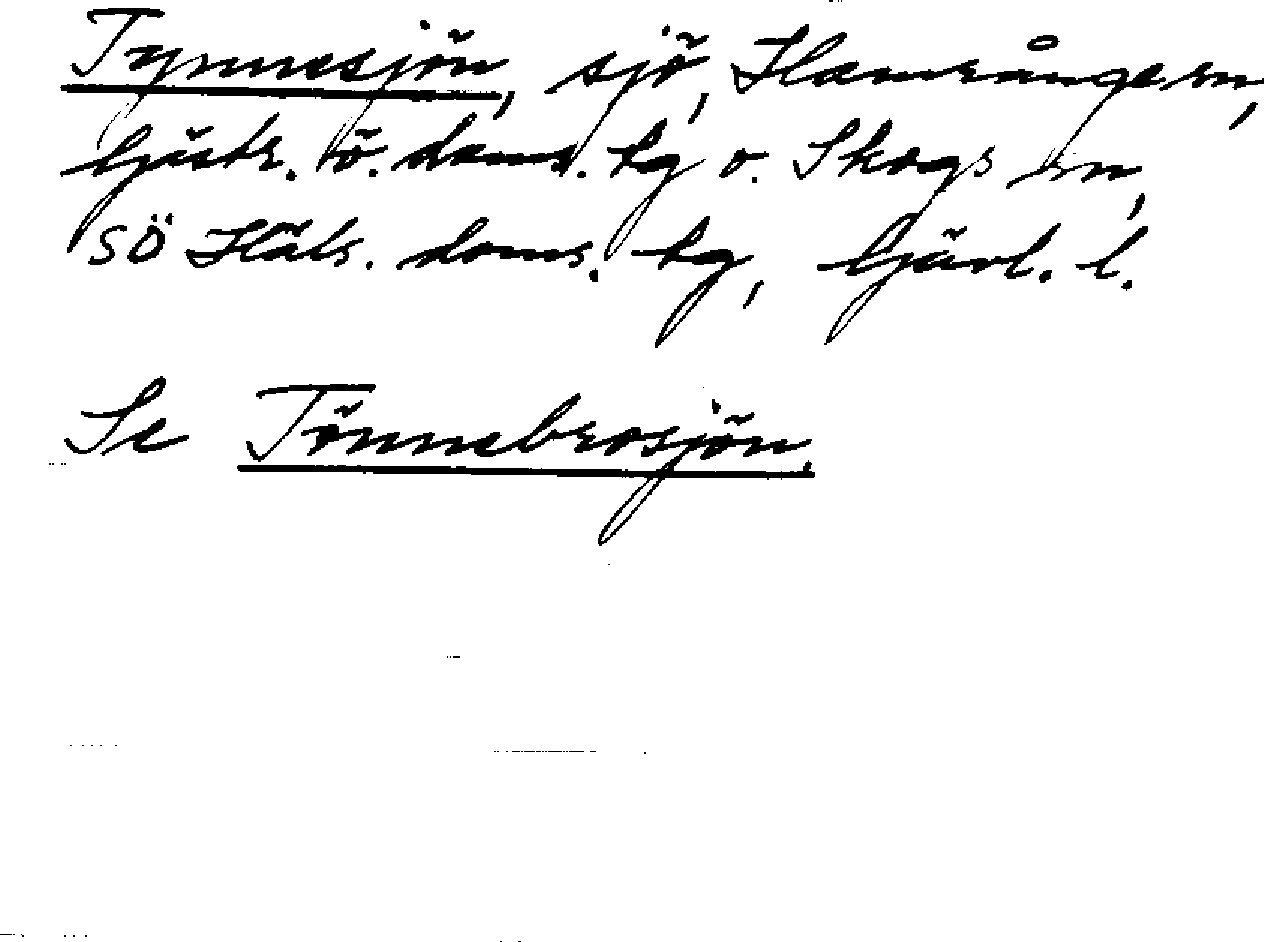 Tynnesjön, sjö, Hamrånge sn,
Gästr. ö. doms. tg o. Skogs sn,
SÖ Häls. doms. tg, Gävl. l.
Se Tönnebrosjön.